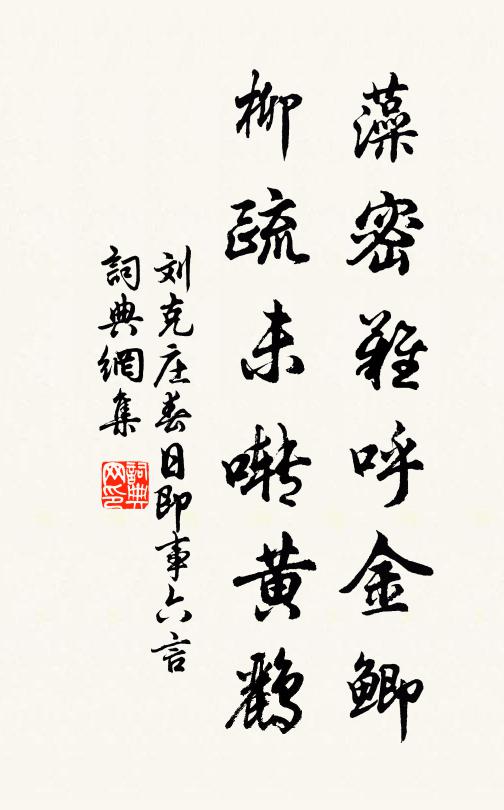 藻密难呼金鲫
柳疏未啭黄鹂
刘克庄春日即事六言
詞典網集
詞典网印